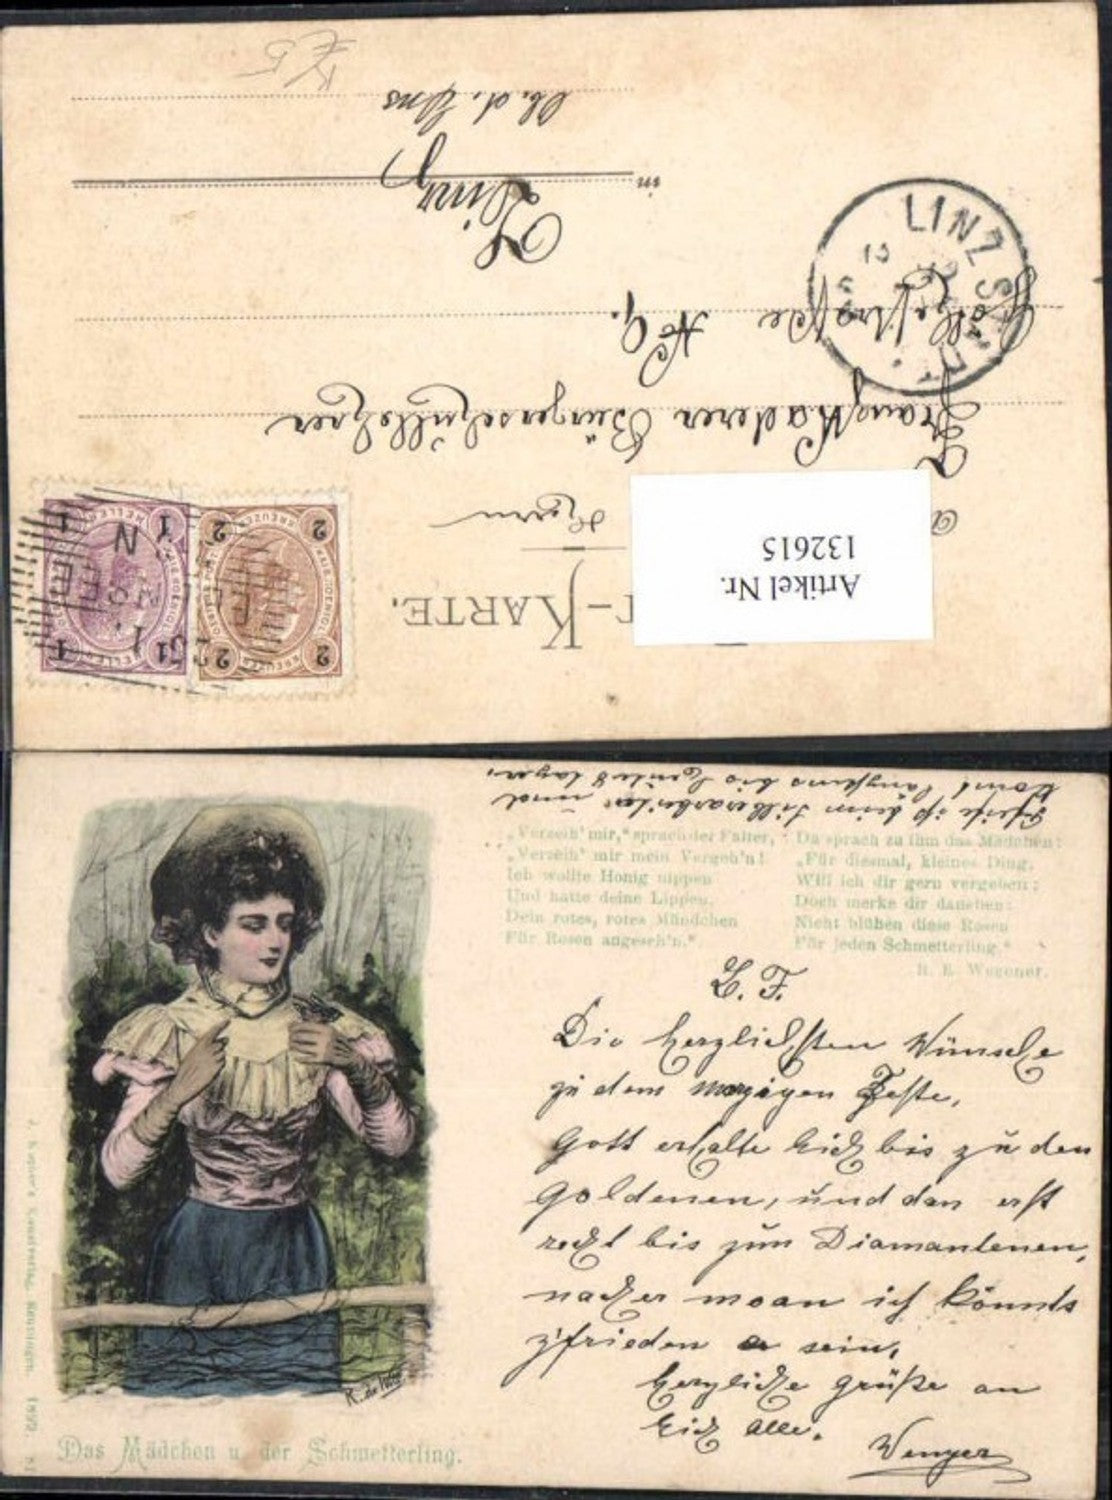 -KARTE.
Artikel Nr.
132615
Herrn
Franz Kaderer Bürgerschullehrer
N° 9.
in
Linz
a. d. Donau
LINZ STADT
2 KREUZER 2
1 HELLER 1
komt längstens bis heute 8 tagen.
„Verzeih' mir,“ sprach der Falter,
„Verzeih' mir mein Vergeh'n!
Ich wollte Honig nippen
Und hatte deine Lippen,
Dein rotes, rotes Mündchen
Für Rosen angeseh'n.“
Da sprach zu ihm das Mädchen:
„Für diesmal, kleines Ding,
Will ich dir gern vergeben;
Doch merke dir daneben:
Nicht blühen diese Rosen
Für jeden Schmetterling.“
R. E. Wegener.
L. F.
Die herzlichsten Wünsche
zu dem morgigen Feste,
Gott erhalte Eich bis zu den
Goldenen, und dan erst
recht bis zum Diamantenen,
nacher moan ich könnts
z'frieden sein,
herzliche Grüße an
Eich alle.
Wenger
1899
Das Mädchen u. der Schmetterling.